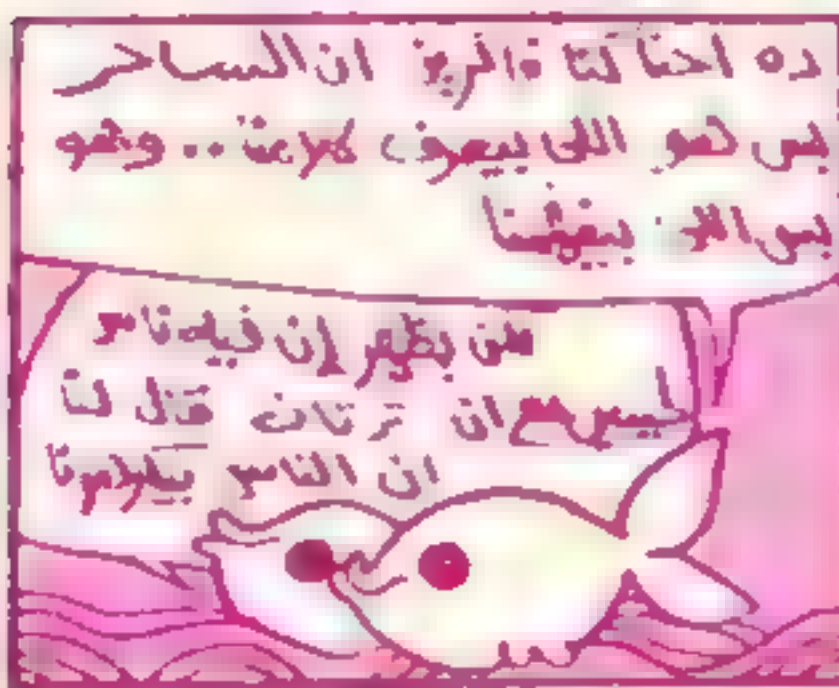 ده احنا كنا فاكرين ان الساحر
بس هو اللى بيعرف لغتنا .. وهو
بس اللى بيفهمنا
من يظهر إن فيه ناس
ليس مع ان ترتان قال لنا
ان الناس